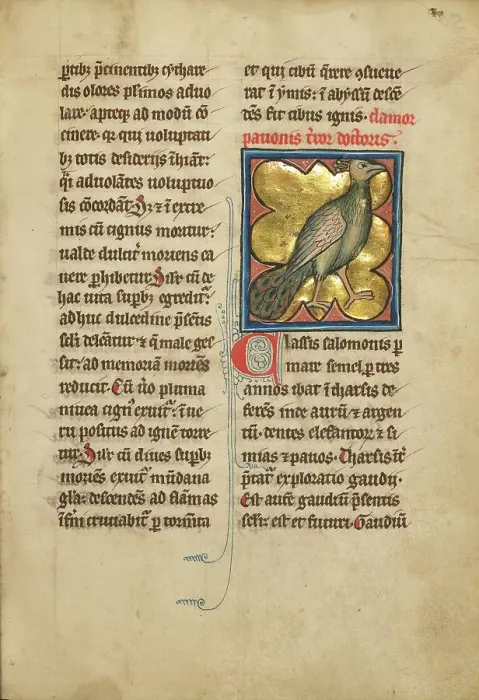 ꝑtibꝫ ꝑtinentibꝫ cythare
dis olores pl'imos aduo
lare. apteqꝫ ad modū cō
cinere. qꝛ qui uoluptati
bꝫ totis desiderijs īhiāt:
q̄i aduolātes uoluptuo
sis cōcordāt. Sꝫ ⁊ ī extre
mis cū cignus moritur:
ualde dulcit̾ moriens ca
nere ꝑhibetur. Silr̄ cū de
hac uita suꝑbꝫ egredit̾:
adhuc dulcedine p̄sentis
scl̄i delcātur. ⁊ q̄ male ges
sit: ad memoriā moriēs
reducit. Cū ũo pluma
niuea cigni exuit̾: ī ue
ru positus ad ignē torre
tur. Silr̄ cū diues suꝑbꝫ
moriēs exuit̾ mūdana
gl̄a: descēdēs ad flāmas
īfn̄i cruciabit̾ ꝑ torm̄ta
et qui cibū q̄rere ↄsueue
rat ī ymis: ī abyssū descē
dēs fit cibus ignis. clamor
pauonis t̾ror doctoris.
Classis salomonis ꝑ
mare semel ꝑ tres
annos ibat ī tharsis de
ferēs inde aurū ⁊ argen
tū. dentes elefantoꝝ ⁊ si
mias ⁊ pauos. Tharsis īt̾
p̄tat̾ exploratio gaudij.
Est autē gaudiū p̄sentis
scl̄i: est et futuri. Gaudiū